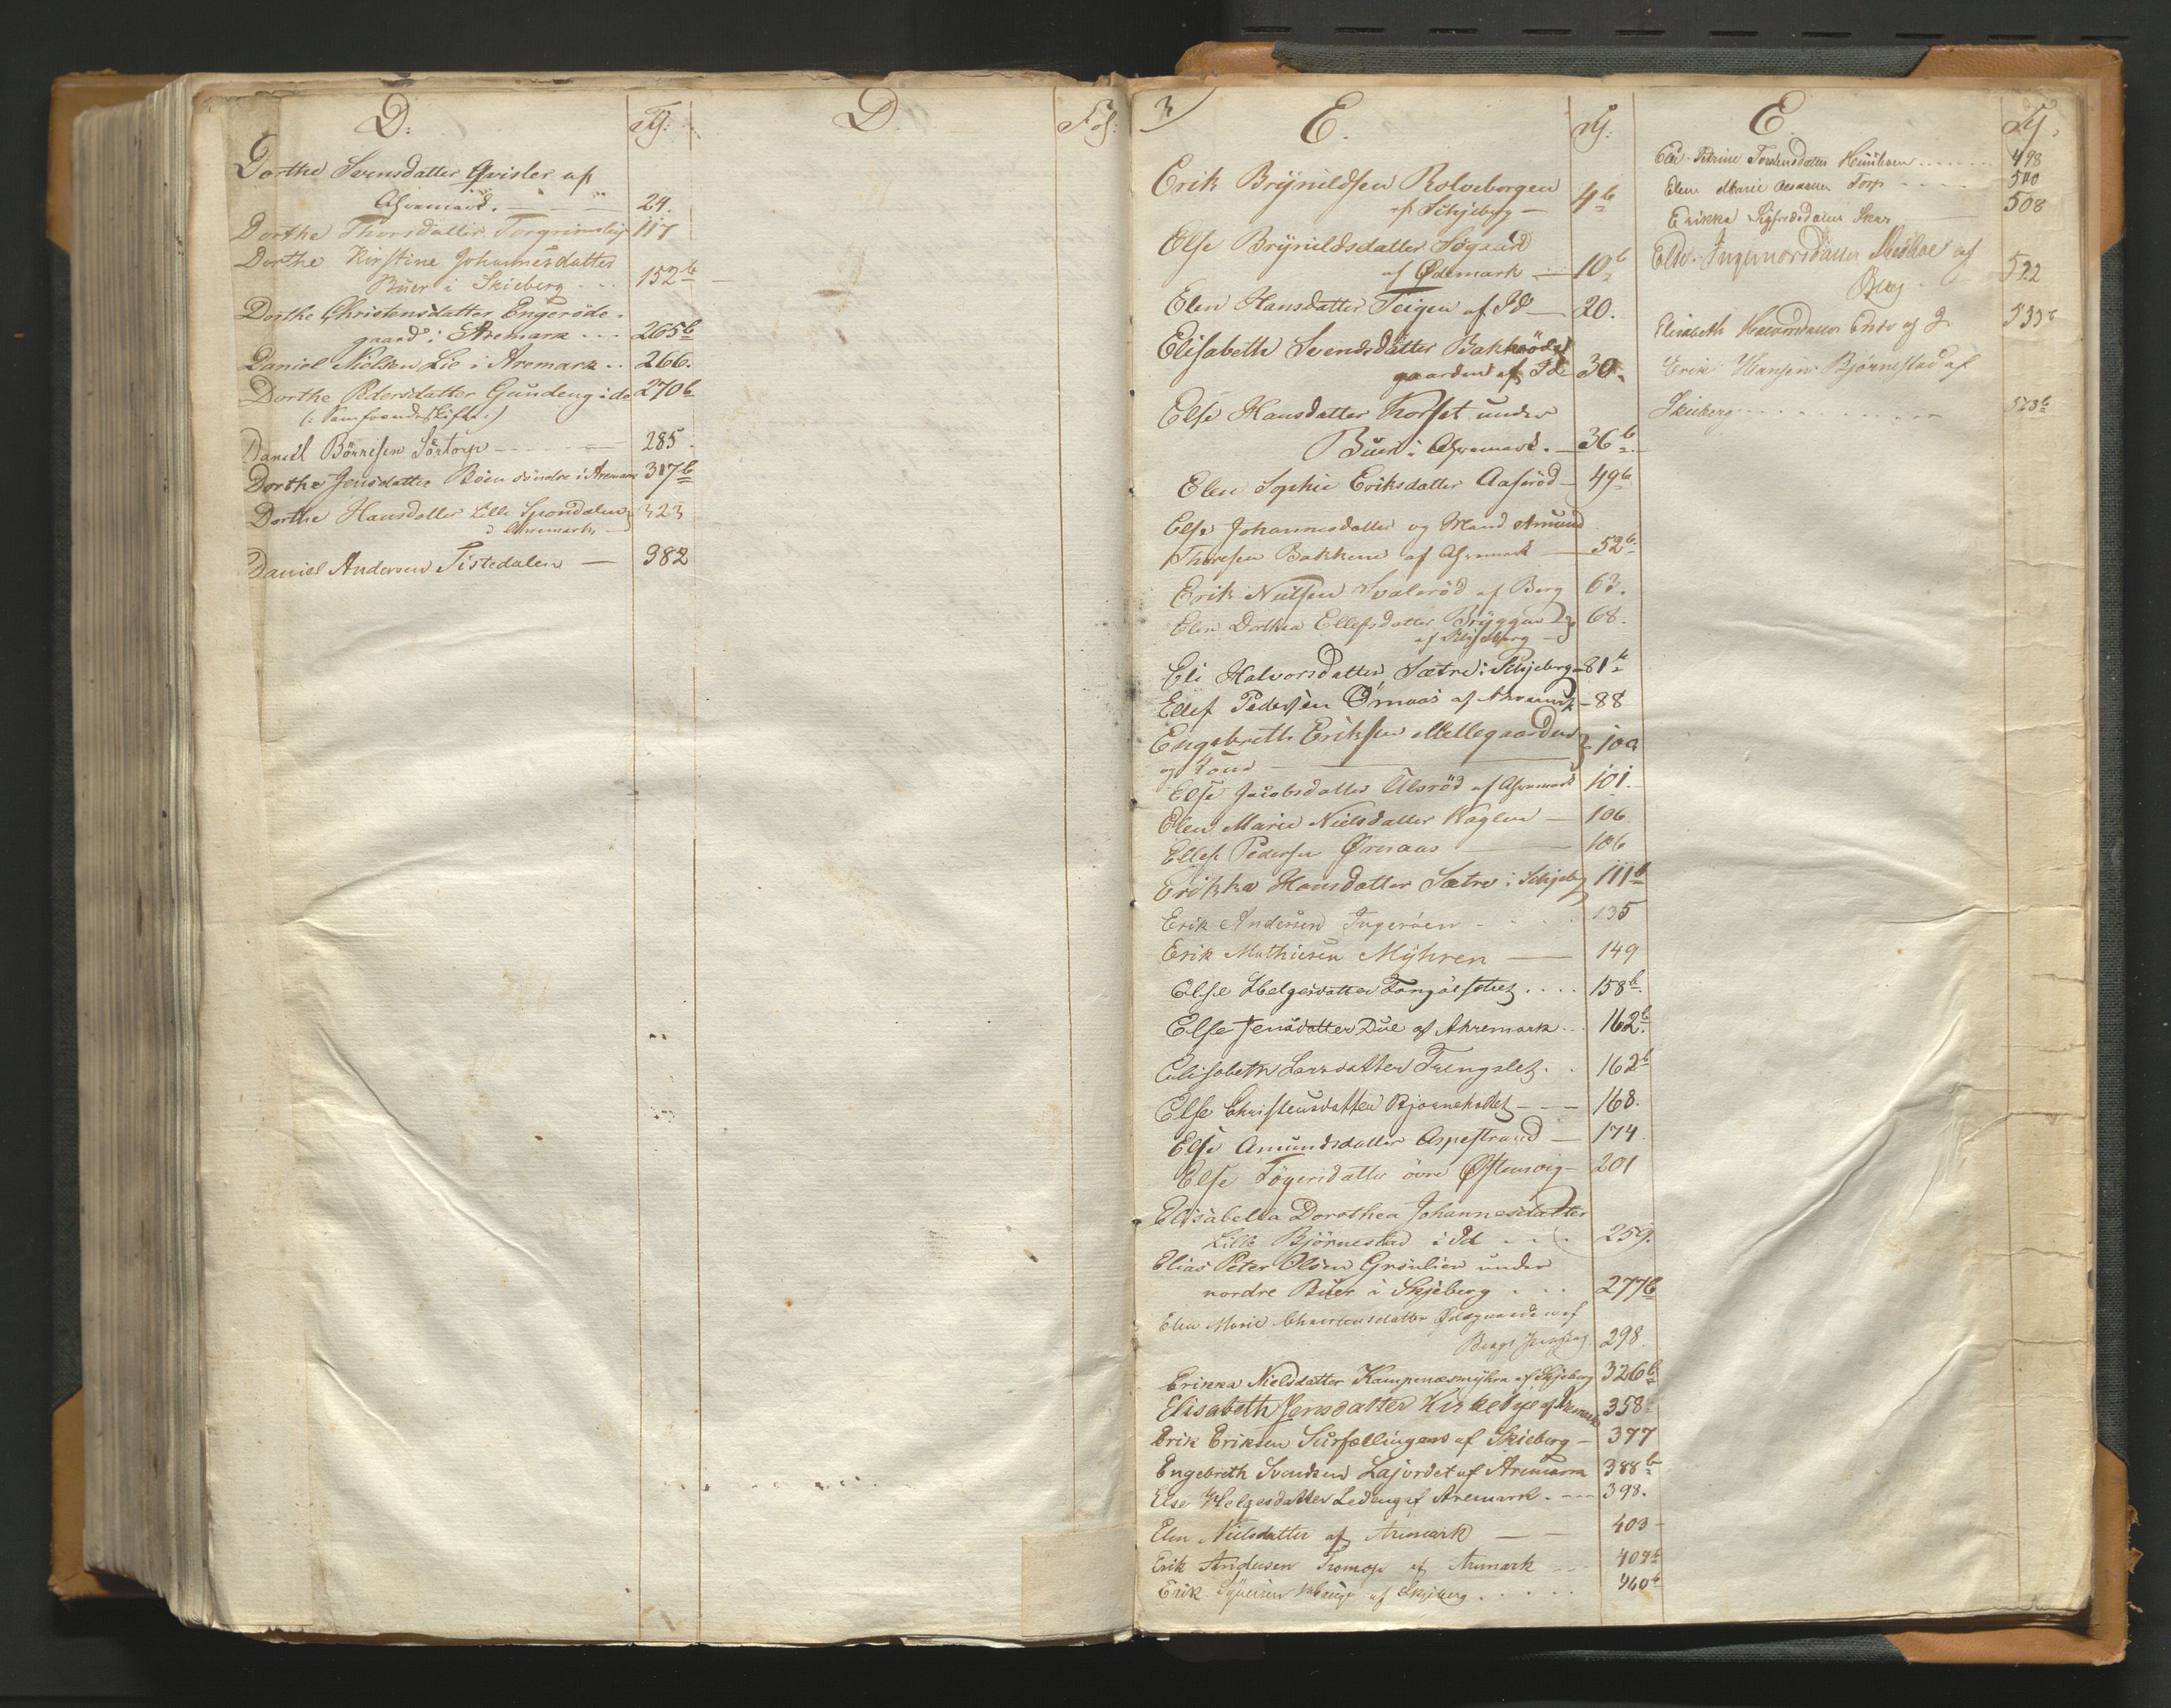 D.
Fol:
D
Fol:
Dorthe Svensdatter Qvisler af
Ahremark. — 24.
Dorthe Thorsdatter Torgrimsby 117
Dorthe Kirstine Johannesdatter
Buer i Skieberg - - - 152b
Dorthe Christensdatter Engeröde-
gaard i Aremark - - - 265b
Daniel Nielsen Lie i Aremark - - 266.
Dorthe Pedersdatter Gundeng i do 270b
(: Samfrændeskifte :)
Daniel Börresen Sörtorp - - - - 285.
Dorthe Jensdatter Böen söndre i Aremark 317b
Dorthe Hansdatter Lille Spondalen
i Ahremark, — 323
Daniel Andersen Tistedalen — 382
3
E.
Fol:
Erik Brynildsen Rolveborgen
af Schjeberg — 4b
Else Brynildsdatter Søgaard
af Ødemark — 10b
Elen Hansdatter Teigen af Id — 20.
Elisabeth Svendsdatter Bakkeröds
gaarden af Id 30.
Else Hansdatter Korset under
Buer i Ahremark. — 36b
Elen Sophie Eriksdatter Aaseröd — 49b
Else Johannesdatter og Mand Amund
Thoresen Bakkene af Ahremark — 52b
Erik Nilsen Svaleröd af Berg 63.
Elen Dorthea Ellefsdatter Bryggen
af Skjeberg — 68.
Eli Halvorsdatter Sætre i Schjeberg — 81b
Ellef Pedersen Ömaas af Ahremark — 88
Engebreth Eriksen Mellegaarden
og Kone — 100
Else Jacobsdatter Ulsröd af Ahremark 101.
Elen Marie Nielsdatter Kaglen — 106.
Ellef Pedersen Ømaas — 106
Erikka Hansdatter Sætre i Schjeberg 111b
Erik Andersen Ingeröen - - - 135
Erik Mathiesen Myhren — 149
Else Helgesdatter - - - - 158b
Else Jensdatter Due af Ahremark - - 162b
Elisabeth Larsdatter Trengslet - - 162b
Else Christensdatter Bjørneholtet - - - 168.
Else Amundsdatter Aspestrand — 174.
Else Tögersdatter övre Østensvig — 201
Elisabetha Dorothea Johannesdatter
Lille Björnestad i Id - - - 259.
Elias Peter Olsen Grönlien under
nordre Buer i Skjeberg - - - 277b
Elen Marie Christensdatter Ødegaarden af
Berg 298.
Erikka Nielsdatter Kampenæsmyhra af Skjeberg 326b
Elisabeth Jensdatter Kirkebye af Aremark 358b
Erik Eriksen Surfellingen af Skieberg — 377
Engebreth Svendsen Lajordet af Aremark 388b
Else Helgesdatter Ledeng af Aremark. - - - 398.
Elen Nielsdatter af Aremark — 403 —
Erik Andersen Tromop af Aremark - - 404b
Erik Syversen af Skjeberg - - - - 460b
E
Fol.
Elen Petrine Torstensdatter - - - - - 498
Elen Marie Torp - - - - 500
Erikka Sigfredsdatter Skar — 508
Else Ingemorsdatter af
Berg - - 522
Elisabeth Halvorsdatter af Id 535b
Erik Hansen Björnestad af
Skieberg - - - - - - - - - 573b